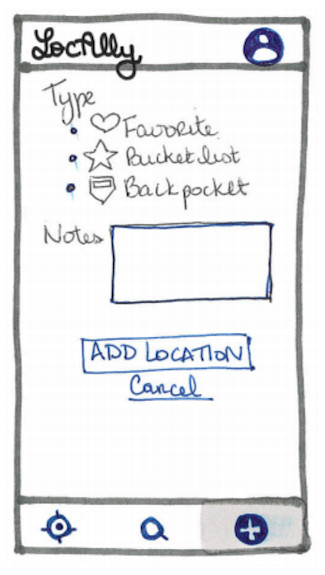 LocAlly
Type
Favorite
Bucket list
Back pocket
Notes
ADD LOCATION
Cancel